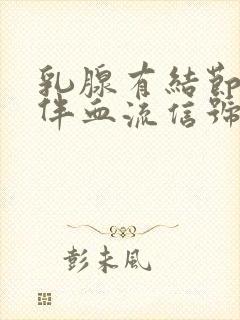 乳腺有結節
伴血流信號
彭未風